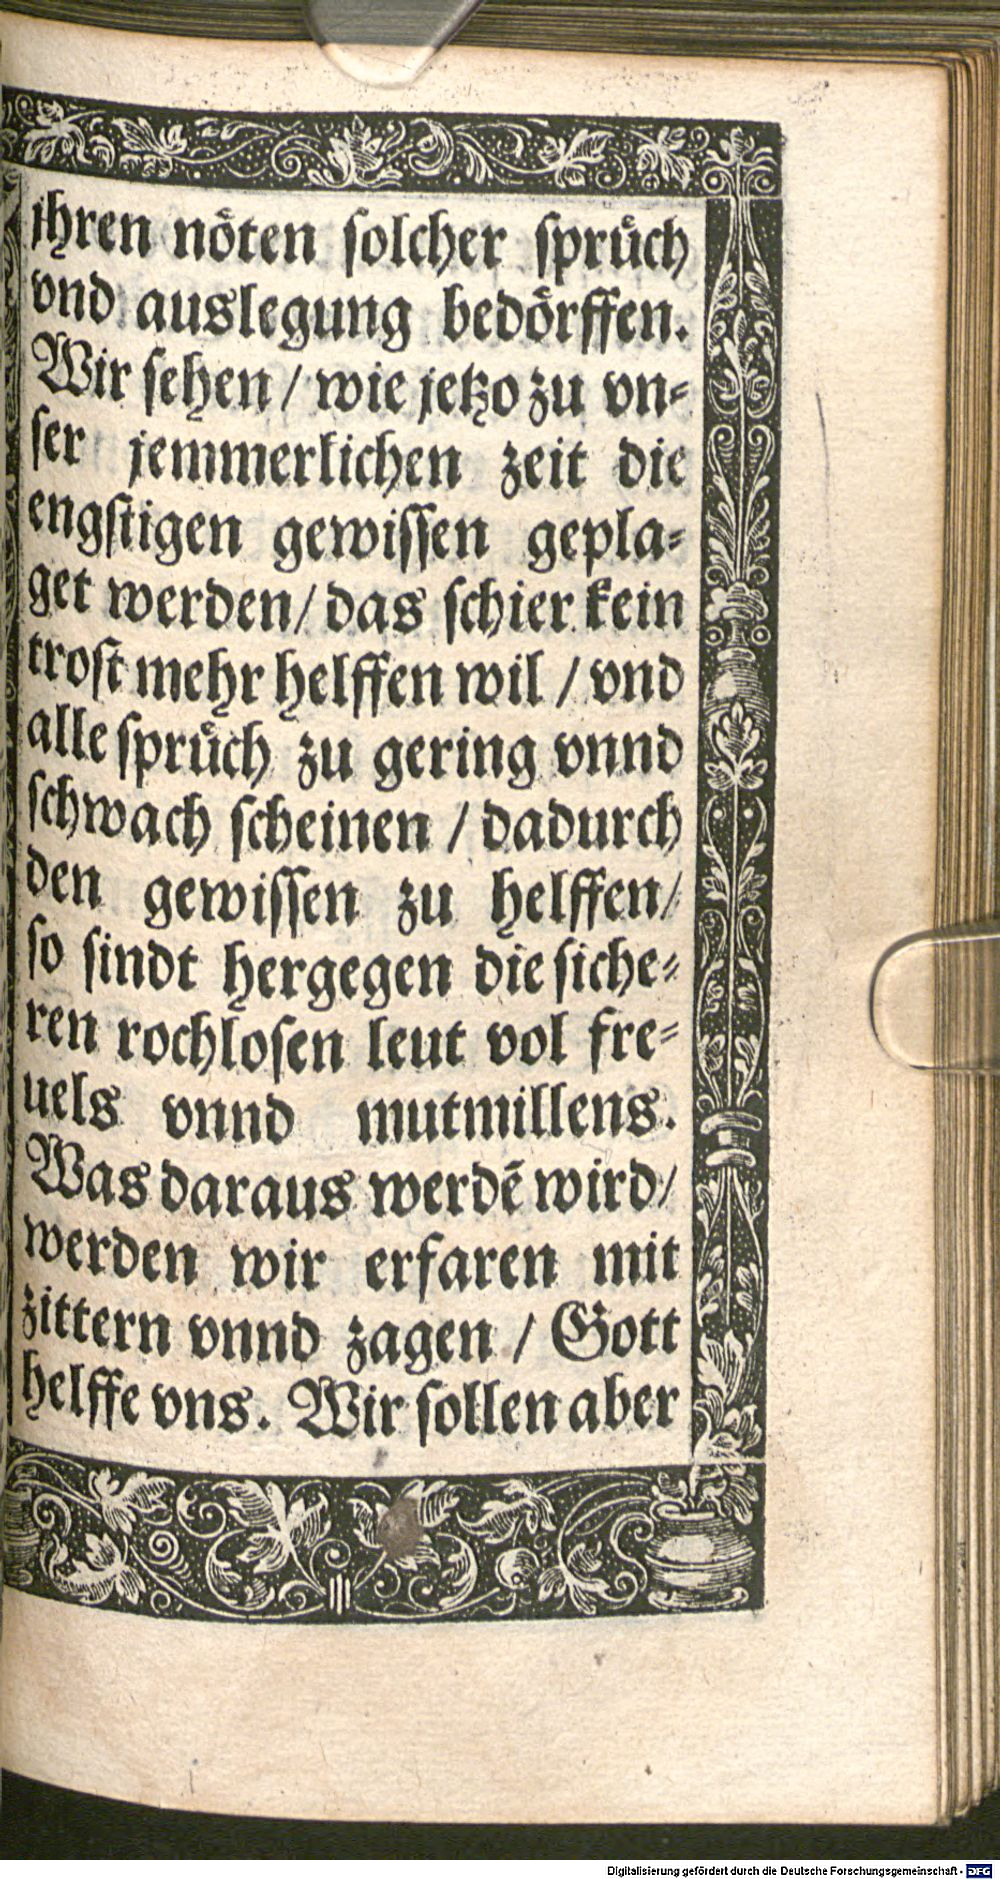 jhren nöten solcher sprüch
vnd auslegung bedörffen.
Wir sehen / wie jetzo zu vn⸗
ser jemmerlichen zeit die
engstigen gewissen gepla⸗
get werden / das schier kein
trost mehr helffen wil / vnd
alle sprüch zu gering vnnd
schwach scheinen / dadurch
den gewissen zu helffen /
so sindt hergegen die siche⸗
ren rochlosen leut vol fre⸗
uels vnnd mutmillens.
Was daraus werdẽ wird /
werden wir erfaren mit
zittern vnnd zagen / Gott
helffe vns. Wir sollen aber
Digitalisierung gefördert durch die Deutsche Forschungsgemeinschaft - DFG